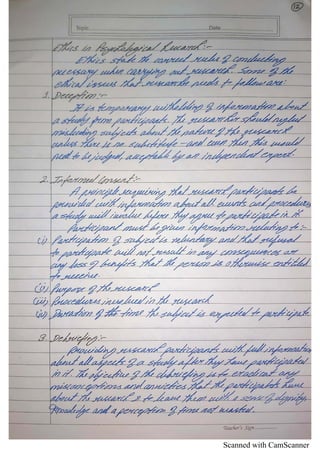 12
Topic Date
Ethics in Psychological Research:-
Ethics state the correct rules of conducting
necessary when carrying out research. Some of the
ethical issues that research needs to follow are:
1. Deception:-
It is temporary witholding of information about
a study from participants. The researcher should neglect
misleading subjects about the nature of the research
unless there is no substitute - and even then this would
need to be judged, acceptable by an independent expert.
2. Informed Consent:-
A principle requiring that research participants be
provided with information about all events and procedures
a study will involve before they agree to participate in it.
Participant must be given information relating to:-
(i) Participation of subject is voluntary and that refusal
to participate will not result in any consequences or
any loss of benefits that the person is otherwise entitled
to receive.
(ii) Purpose of the research
(iii) Procedures involved in the research
(iv) Duration of the time the subject is expected to participate
3. Debriefing:-
Providing research participants with full information
about all aspects of a study after they have participated
in it. The objective of the debriefing is to eradicate any
misconceptions and anxieties that the participants have
about the research & to leave them with a sense of dignity,
knowledge and a perception of time not wasted.
Teacher's Sign
Scanned with CamScanner